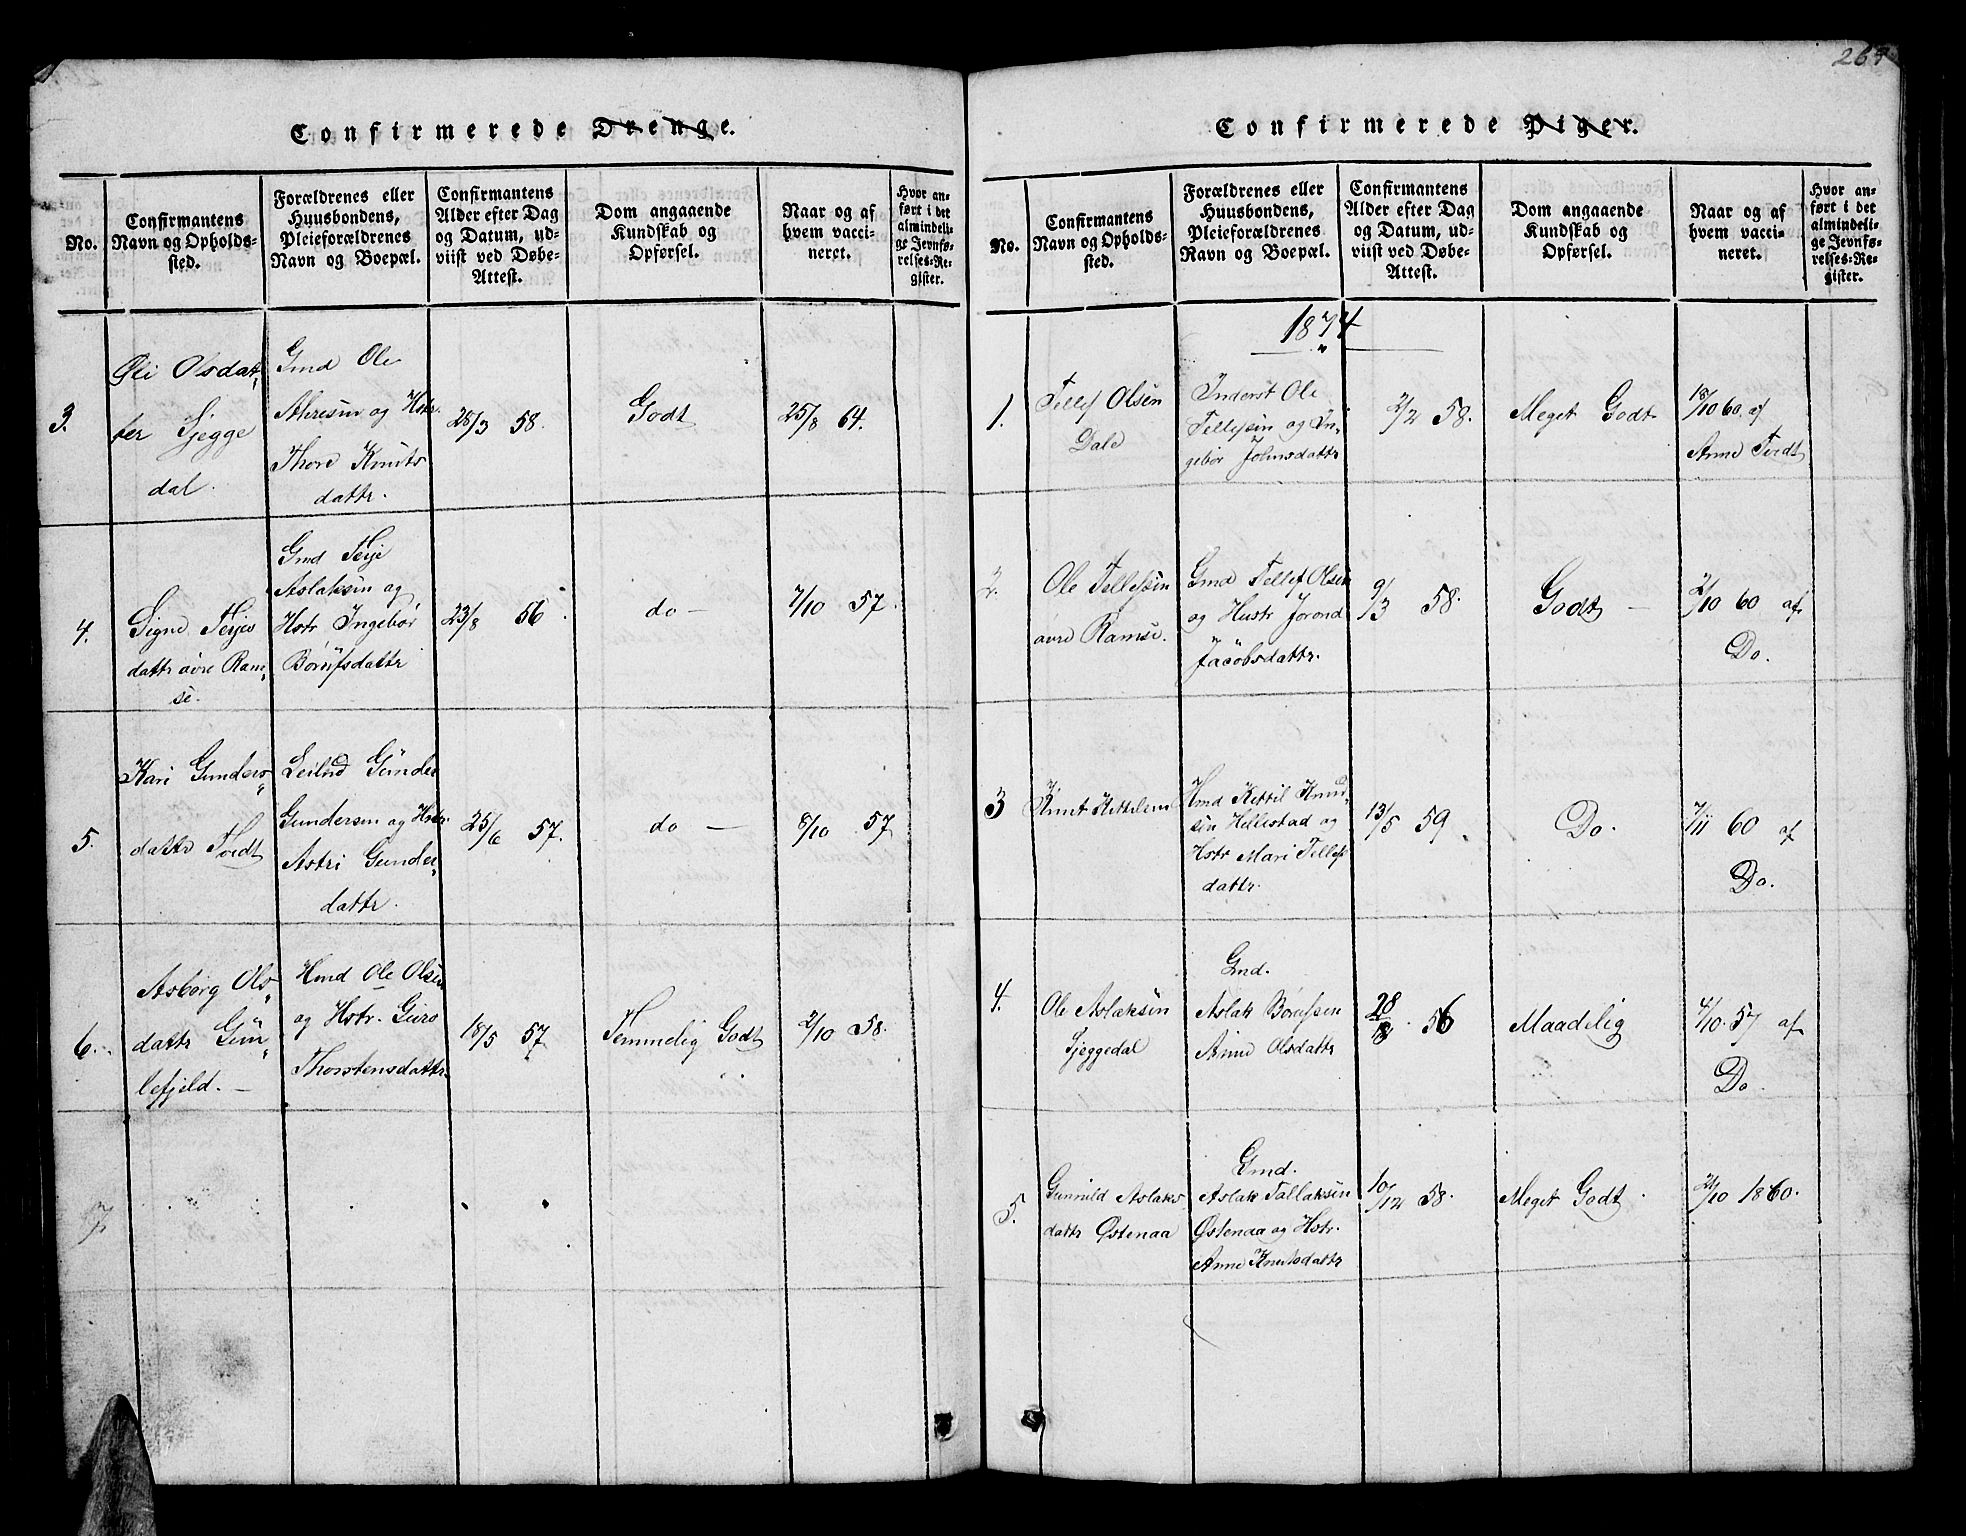 Confirmerede Drenge.
No.
Confirmantens
Navn og Opholds-
sted.
Forældrenes eller
Huusbondens,
Pleieforældrenes
Navn og Boepæl.
Confirmantens
Alder efter Dag
og Datum, ud-
viist ved Døbe-
Attest.
Dom angaaende
Kundskab og
Opførsel.
Naar og af
hvem vacci-
neret.
Hvor an-
ført i det
almindeli-
ge Jevnfø-
relses-Re-
gister.
3.
Oli Olsdat-
ter Tjegge
dal.
Gmd Ole
og Hstr.
Thore Knuts
dattr.
28/3 58.
Godt
25/8 64.
4.
Signe Terjes
dattr øvre Ram-
se.
Gmd Terje
Aslaksen og
Hstr Ingebor
Børufsdattr
23/8 56.
do —
7/10 57.
5.
Kari Gunders-
dattr Tvedt
Leilnd Gunder
Gundersen og Hstr.
Astri Gunder-
dattr.
25/6 57.
do —
8/10 57
6.
Asborg Ols-
dattr Gun-
lefjeld. —
Hmd Ole Olsen
og Hstr. Guro
Thorstensdattr.
18/5 57
Temmelig Godt
2/10 58.
7.
269
Confirmerede Piger.
No.
Confirmantens
Navn og Opholds-
sted.
Forældrenes eller
Huusbondens,
Pleieforældrenes
Navn og Boepæl.
Confirmantens
Alder efter Dag
og Datum, ud-
viist ved Døbe-
Attest.
Dom angaaende
Kundskab og
Opførsel.
Naar og af
hvem vacci-
neret.
Hvor an-
ført i det
almindeli-
ge Jevnfø-
relses-Re-
gister.
1874
1.
Tellef Olsen
Dale
Inderst Ole
Tellefsen og In-
gebor Johnsdattr
2/2 58.
Meget Godt
18/10 60. af
Anne Tvedt
2.
Ole Tellefsen
øvre Ramse.
Gmd Tellef Olsen
og Hustr Jorond
Jacobsdattr.
9/3 58.
Godt —
2/10 60 af
Do.
3
Knut Kittilsen
Hmd Kettil Knud-
sen Hillestad og
Hstr Mari Tellefs
dattr.
13/5 59.
Do.
7/11 60 af
Do.
4.
Ole Aslaksen
Tjeggedal
Gmd.
Aslak Børufsen
Anne Olsdattr
56
Maadelig
4/10. 57 af
Do
5.
Gunvild Aslaks
dattr Østenaa
Gmd.
Aslak Tallaksen
Østenaa og Hstr.
Anne Knutsdattr
10/12 58.
Meget Godt.
1860.